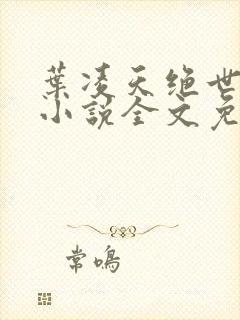 葉凌天绝世
小說全文免
常鳴